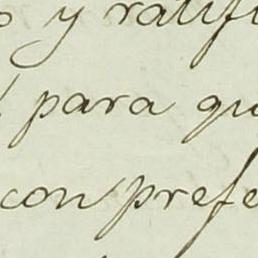 y ratifi
para qu
con prefe